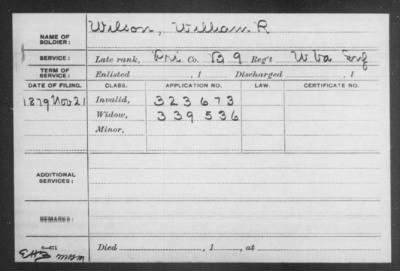 NAME OF SOLDIER: Wilson, William R
SERVICE: Late rank, Pri Co. B 9 Reg't W Va Inf
TERM OF SERVICE: Enlisted , 1 Discharged , 1
DATE OF FILING. CLASS. APPLICATION NO. LAW. CERTIFICATE NO.
1879 Nov 21 Invalid, 323673
Widow, 339536
Minor,
ADDITIONAL SERVICES:
REMARKS:
Died , 1 , at